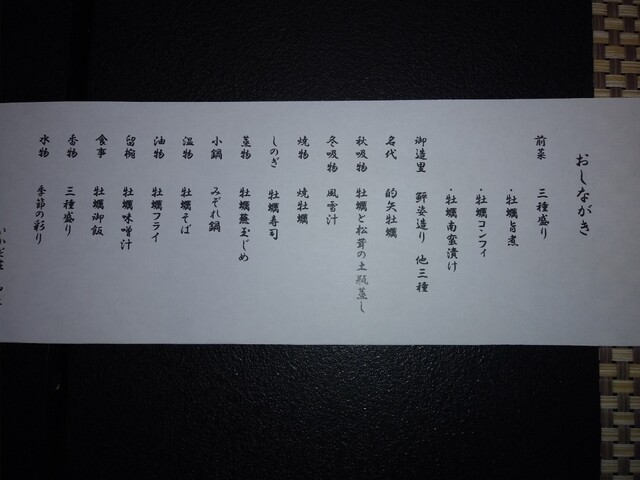 おしながき
前菜 三種盛り
・牡蠣旨煮
・牡蠣コンフィ
・牡蠣南蛮漬け
御造里 鮮姿造り 他三種
名代 的矢牡蠣
秋吸物 牡蠣と松茸の土瓶蒸し
冬吸物 風雪汁
焼物 焼牡蠣
しのぎ 牡蠣寿司
蒸物 牡蠣蕪玉じめ
小鍋 みぞれ鍋
温物 牡蠣そば
油物 牡蠣フライ
留椀 牡蠣味噌汁
食事 牡蠣御飯
香物 三種盛り
水物 季節の彩り